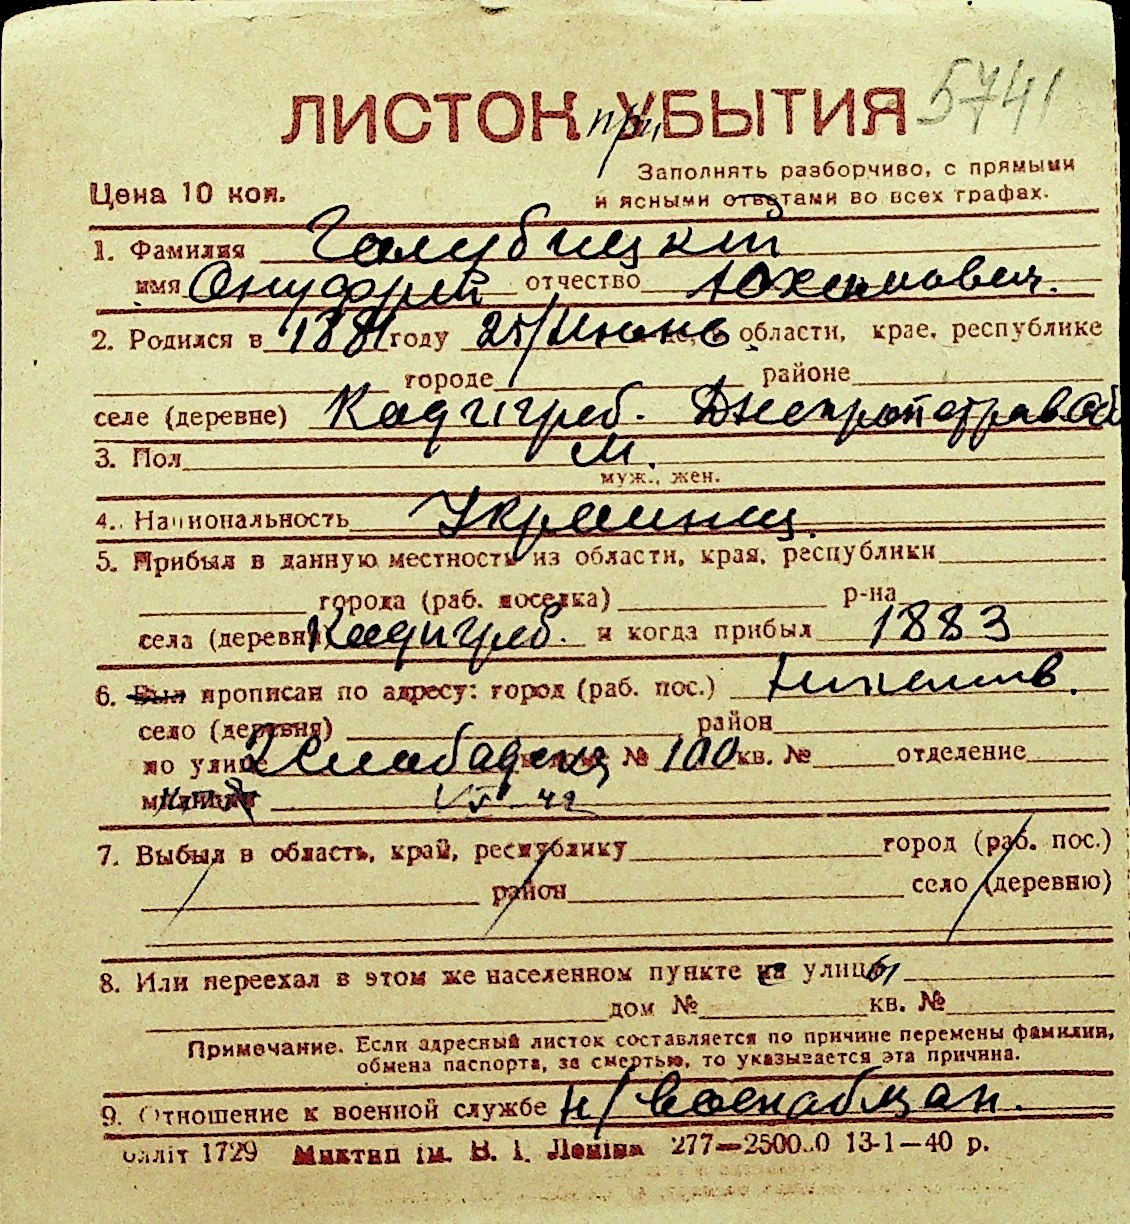 5741
ЛИСТОК при УБЫТИЯ
Заполнять разборчиво, с прямыми
Цена 10 коп.
и ясными ответами во всех графах.
1. Фамилия Галубицкий
имя Онуфрий отчество Юхимович.
2. Родился в 1881 году 25/Июнь области, крае, республике
городе районе
селе (деревне) Днепропетравск Об
3. Пол М.
муж., жен.
4. Национальность Украинец.
5. Прибыл в данную местность из области, края, республики
города (раб. поселка) р-на
села (деревни) и когда прибыл 1883
6. Был прописан по адресу: город (раб. пос.)
село (деревня) район
по улице № 100 кв. № отделение
милиции VI-42
7. Выбыл в область, край, республику город (раб. пос.)
район село (деревню)
8. Или переехал в этом же населенном пункте с улицы
дом № кв. №
Примечание. Если адресный листок составляется по причине перемены фамилии,
обмена паспорта, за смертью, то указывается эта причина.
9. Отношение к военной службе н/военабязан.
обліт 1729 Миктип ім. В. І. Леніна 277—2500.0 13-1—40 р.